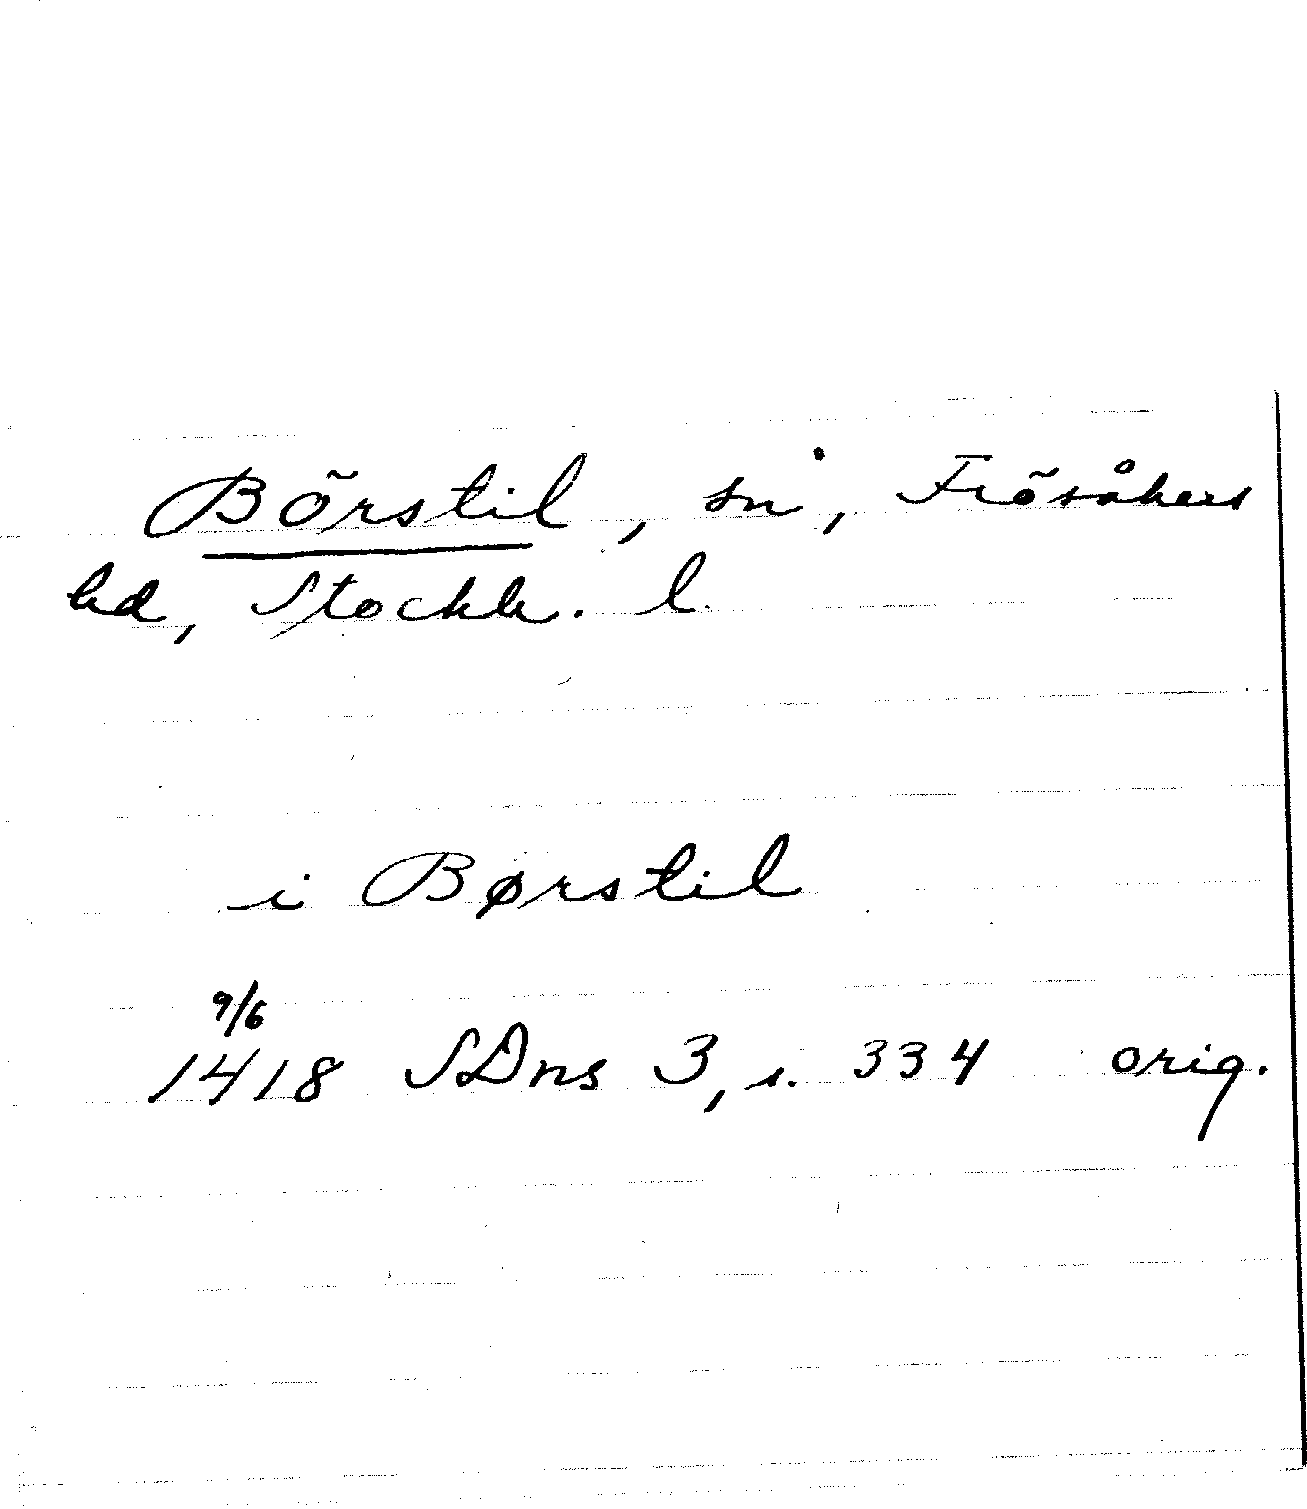 Börstil, sn, Frösåkers
hd, Stockh. l.
i Børstil
9/6
1418 SDns 3, s. 334 orig.